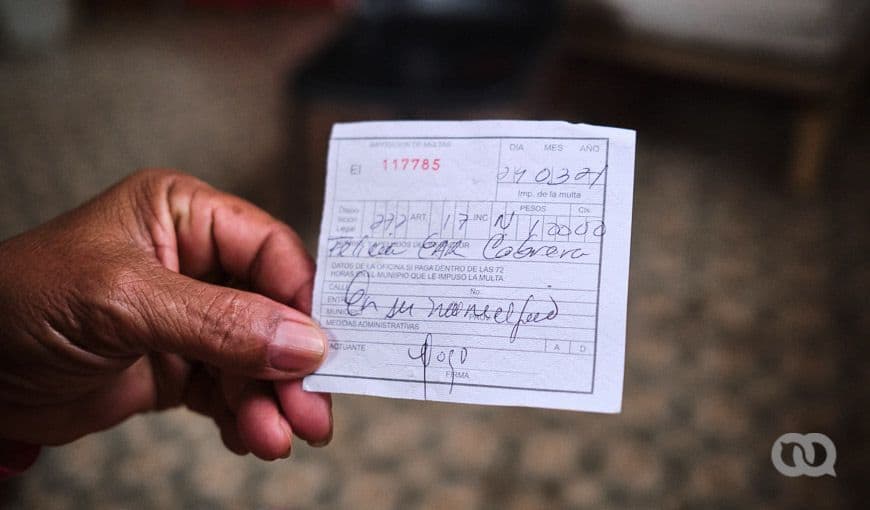 IMPOSICION DE MULTAS
EI 117785
DIA MES AÑO
24 03 21
Imp. de la multa
PESOS Cts.
Dispo-
sición
Legal 272 ART. 17 INC N
Cabrera
DATOS DE LA OFICINA SI PAGA DENTRO DE LAS 72
HORAS EN EL MUNISPIO QUE LE IMPUSO LA MULTA.
CALLE No.
En su
MEDIDAS ADMINISTRATIVAS
A D
ACTUANTE
FIRMA